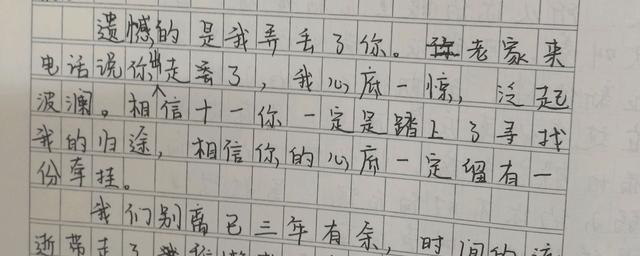 遗憾的是我弄丢了你。老家来
电话说你出走丢了，我心底一惊，泛起
波澜。相信十一你一定是踏上了寻找
我的归途，相信你的心底一定留有一
份牵挂。
我们别离已三年有余，时间的流
逝带走了我